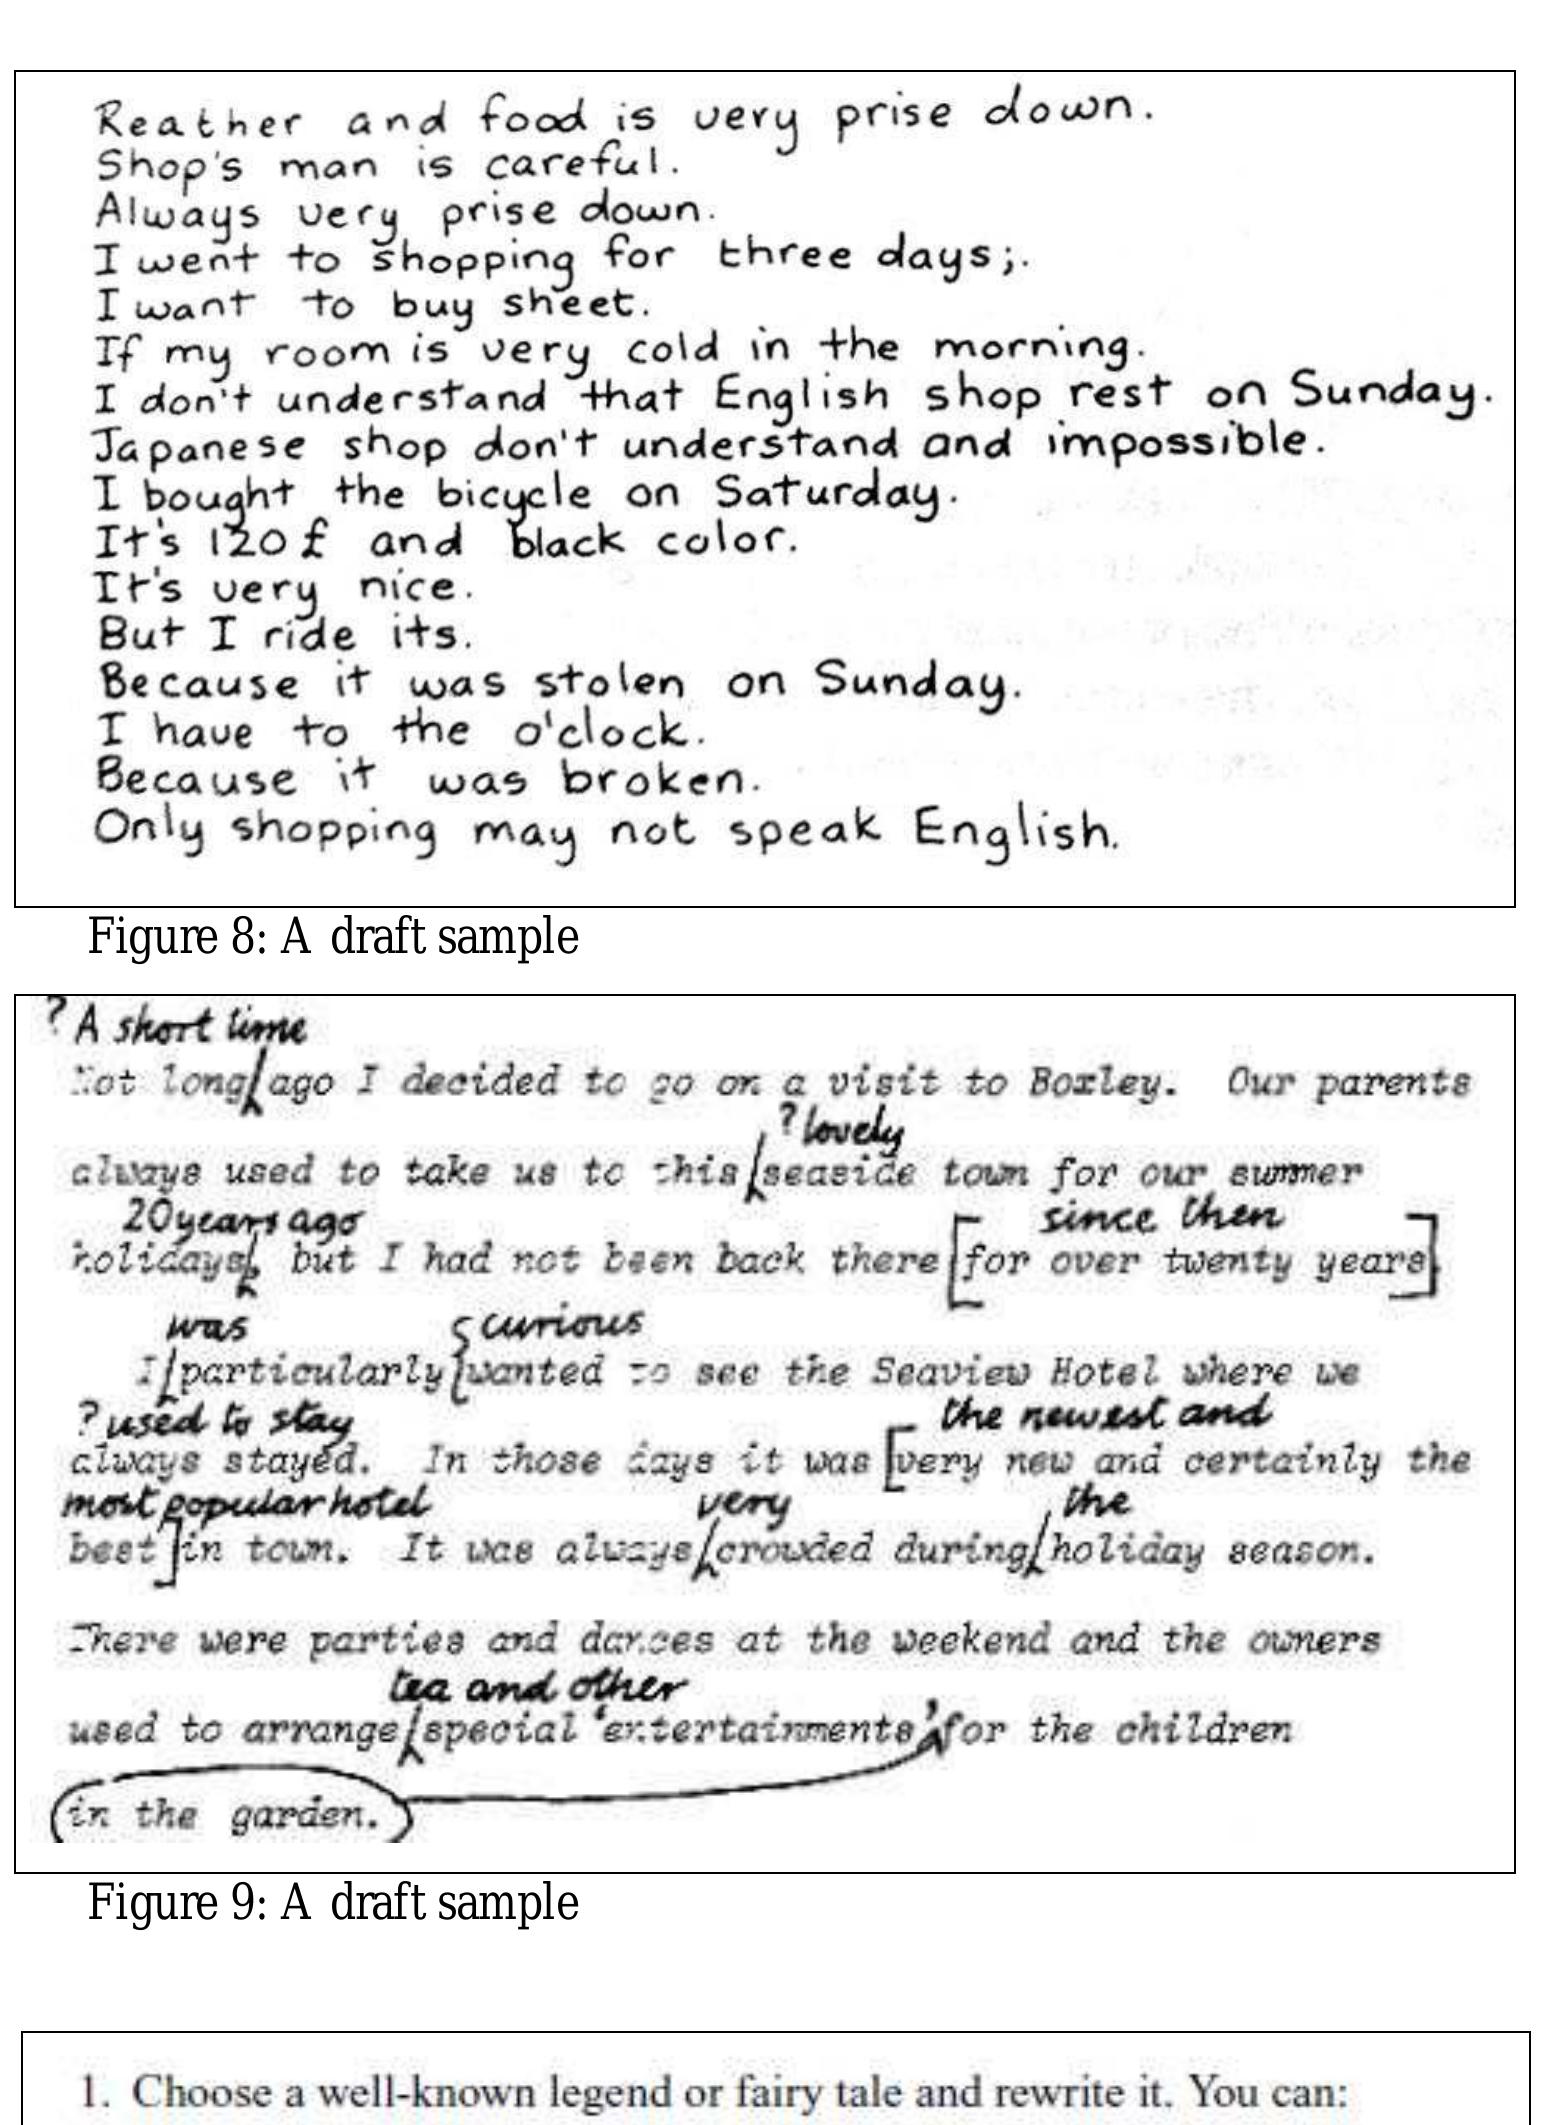 Reather and food is very prise down.
Shop's man is careful.
Always very prise down.
I went to shopping for three days;.
I want to buy sheet.
If my room is very cold in the morning.
I don't understand that English shop rest on Sunday.
Japanese shop don't understand and impossible.
I bought the bicycle on Saturday.
It's 120£ and black color.
It's very nice.
But I ride its.
Because it was stolen on Sunday.
I have to the o'clock.
Because it was broken.
Only shopping may not speak English.
Figure 8: A draft sample
? A short time
Not long ago I decided to go on a visit to Boxley. Our parents
? lovely
always used to take us to this seaside town for our summer
20 years ago since then
holidays, but I had not been back there [for over twenty years].
was curious
I particularly wanted to see the Seaview Hotel where we
? used to stay the newest and
always stayed. In those days it was [very new and certainly the
most popular hotel very the
best] in town. It was always crowded during holiday season.
There were parties and dances at the weekend and the owners
tea and other
used to arrange special 'entertainments' for the children
in the garden.
Figure 9: A draft sample
1. Choose a well-known legend or fairy tale and rewrite it. You can: